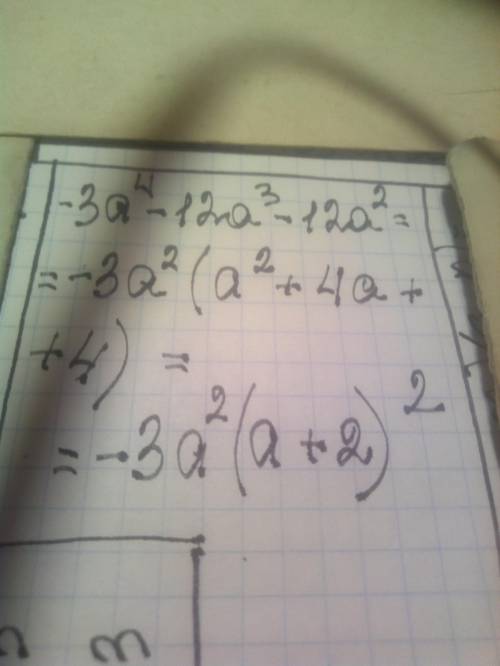 -3a⁴-12a³-12a²=
=-3a²(a²+4a+
+4)=
=-3a²(a+2)²